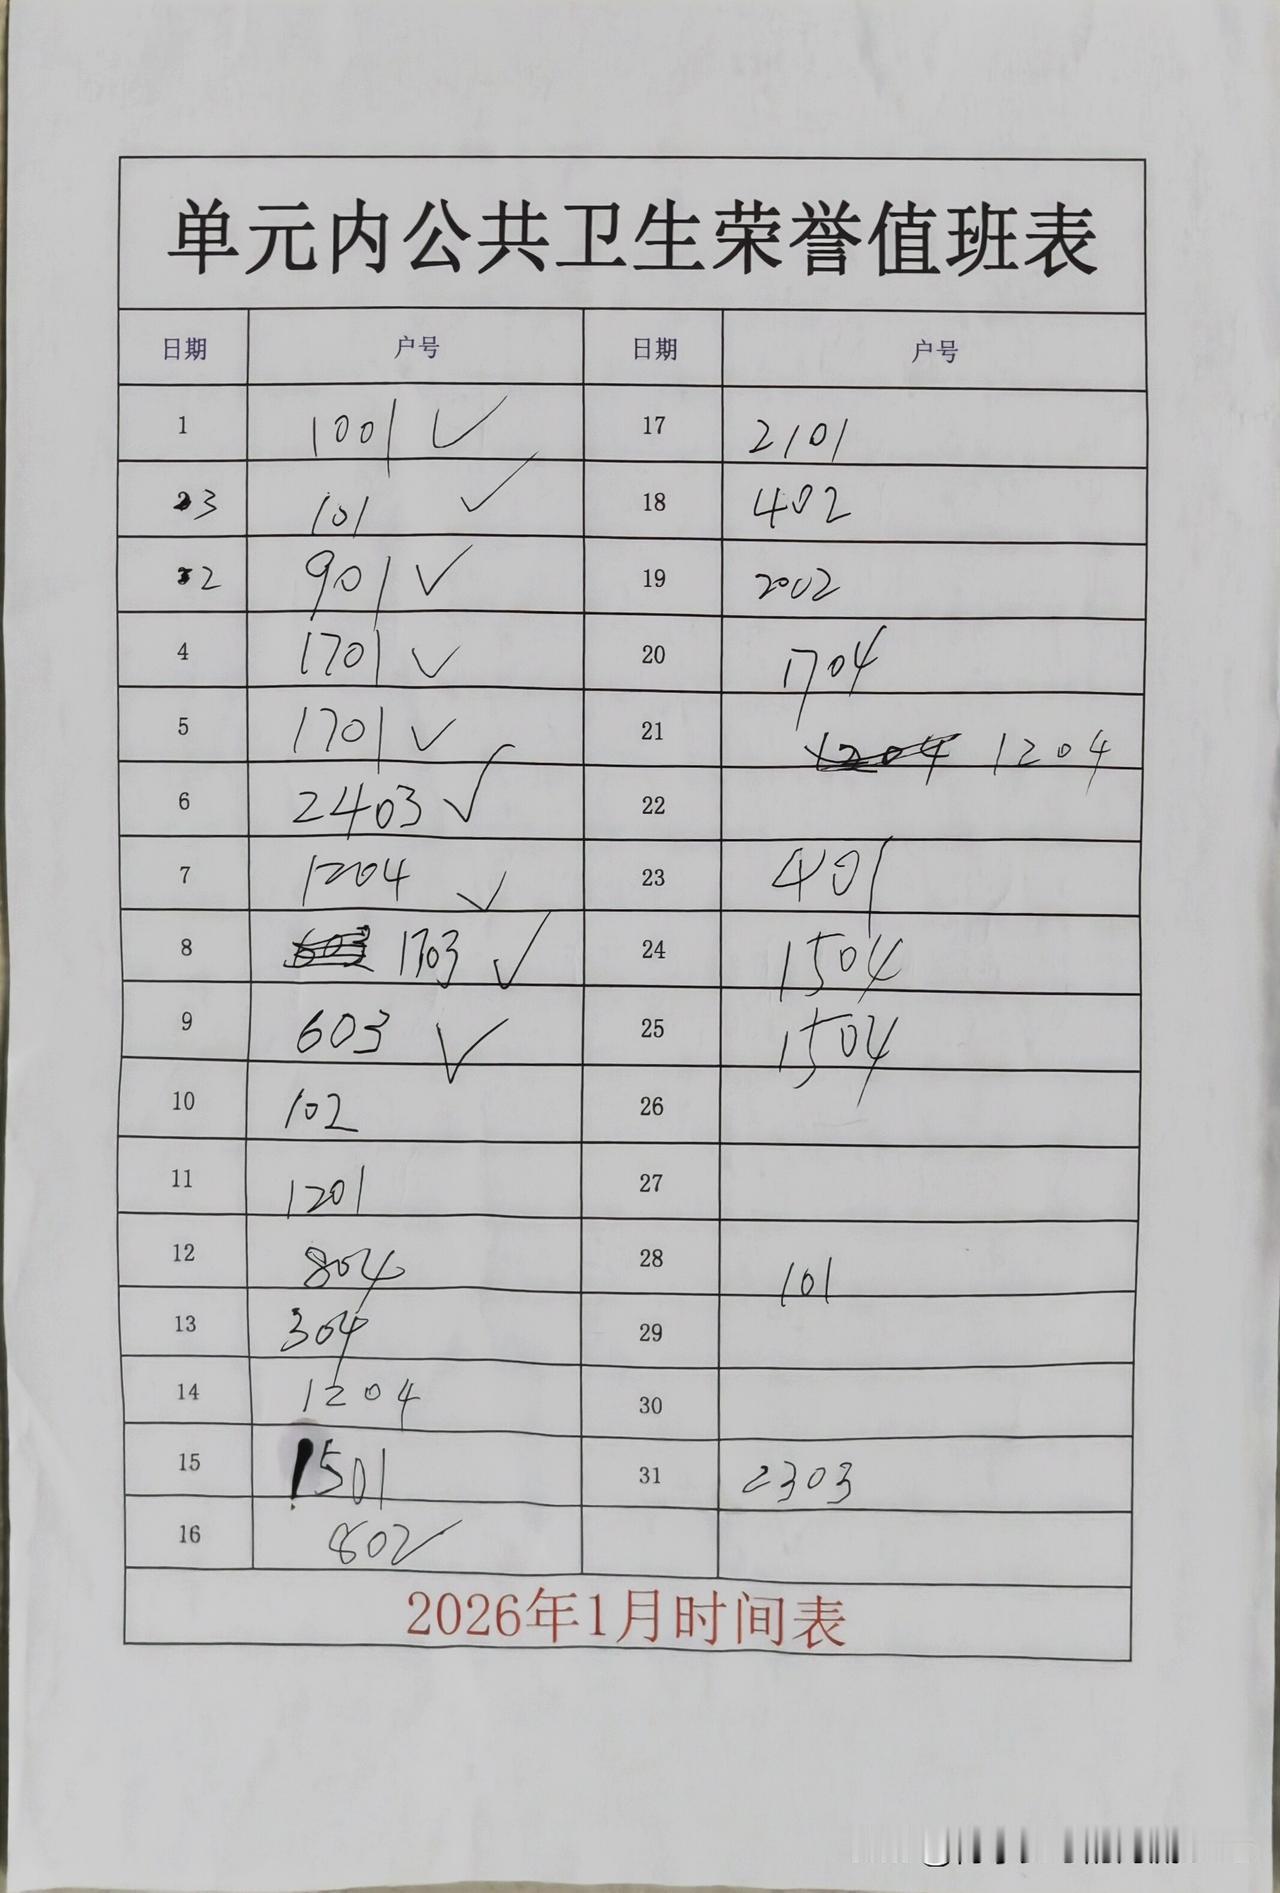 单元内公共卫生荣誉值班表
日期 户号 日期 户号
1 1001 ✓ 17 2101
3 101 ✓ 18 402
2 901 ✓ 19 2002
4 1701 ✓ 20 1704
5 1701 ✓ 21 1204 1204
6 2403 ✓ 22
7 1204 ✓ 23 401
8 603 1703 ✓ 24 1504
9 603 ✓ 25 1504
10 102 26
11 1201 27
12 804 28 101
13 304 29
14 1204 30
15 1501 31 2303
16 802
2026年1月时间表